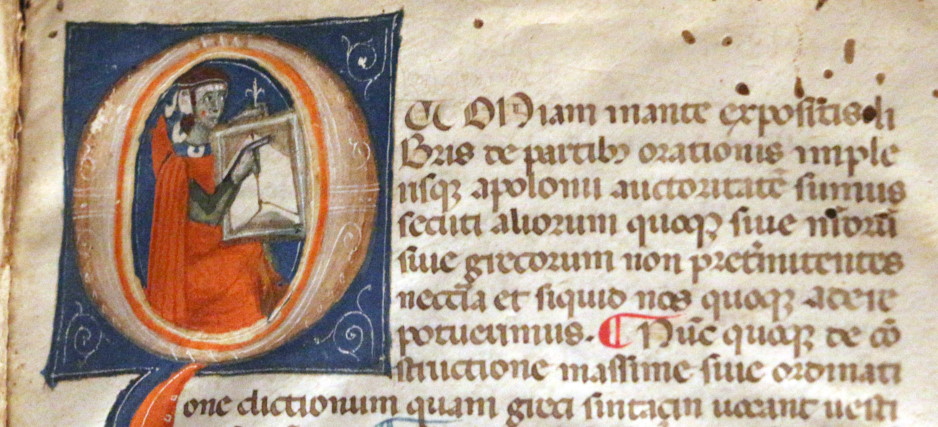 QUONiam in ante expositis li
bris de partibꝫ orationis in ple
risqꝫ apolonii auctoritatē sumus
secuti aliorum quoqꝫ siue nr̄orū
siue grecorum non pretmittentes
necc̄ia et siquid nos quoqꝫ adere
potuerimus. ¶ Nūc quoqꝫ de cō
structione maxime siue ordinati
one dictionum quam greci sintaxin uocant